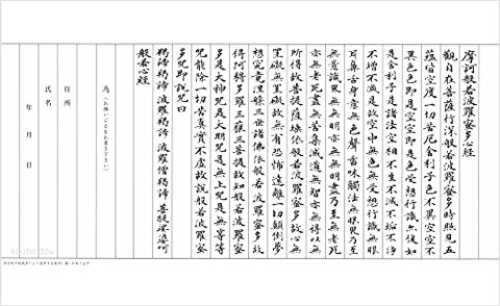 摩訶般若波羅蜜多心經
觀自在菩薩行深般若波羅蜜多時照見五
蘊皆空度一切苦厄舍利子色不異空空不
異色色即是空空即是色受想行識亦復如
是舍利子是諸法空相不生不滅不垢不淨
不增不減是故空中無色無受想行識無眼
耳鼻舌身意無色聲香味觸法無眼界乃至
無意識界無無明亦無無明盡乃至無老死
亦無老死盡無苦集滅道無智亦無得以無
所得故菩提薩埵依般若波羅蜜多故心無
罣礙無罣礙故無有恐怖遠離一切顛倒夢
想究竟涅槃三世諸佛依般若波羅蜜多故
得阿耨多羅三藐三菩提故知般若波羅蜜
多是大神呪是大明呪是無上呪是無等等
呪能除一切苦真實不虛故說般若波羅蜜
多呪即說呪曰
羯諦羯諦 波羅羯諦 波羅僧羯諦 菩提薩婆訶
般若心經
為（お願いごとをお書き下さい）
住所
氏名
年 月 日